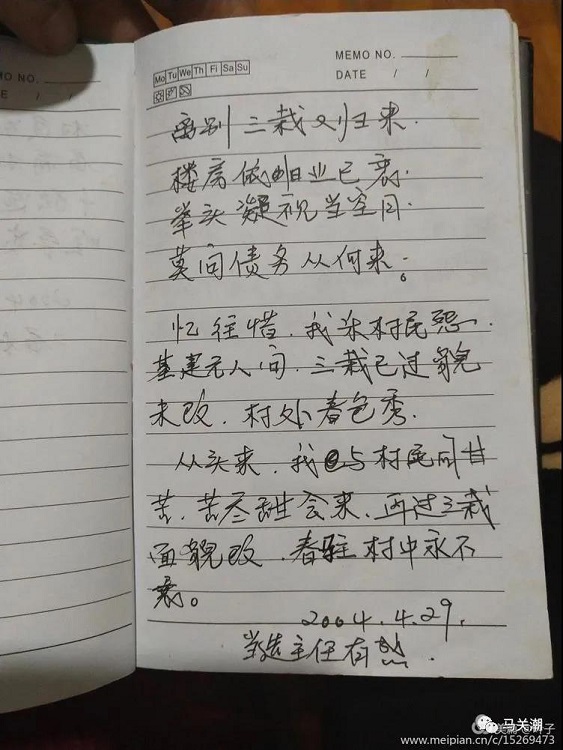 MO NO.
E /
MEMO NO.
Mo Tu We Th Fi Sa Su
DATE / /
离别三栽又归来.
楼房依旧业已衰.
举头凝视当空月.
莫问债务从何来。
忆往惜.我来村民怨.
基建无人问.三栽已过貌
未改.村外春色秀.
从头来.我与村民同甘
苦.苦尽甜会来.再过三栽
面貌改.春驻村中永不
衰。
2004.4.29.
当选主任有感.
马关潮
www.meipian.cn/c/15269473